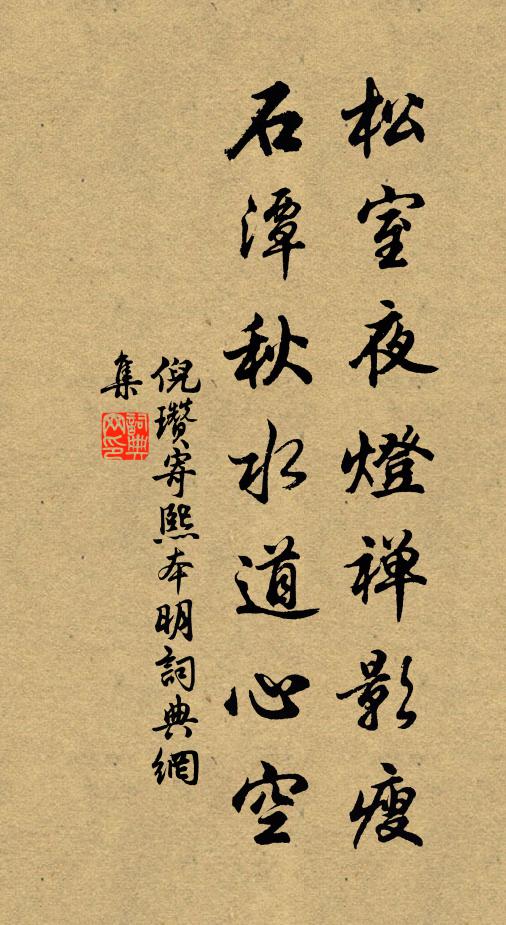 松室夜燈禅影瘦
石潭秋水道心空
倪瓚寄熙本明詞典網
集
詞典
网印